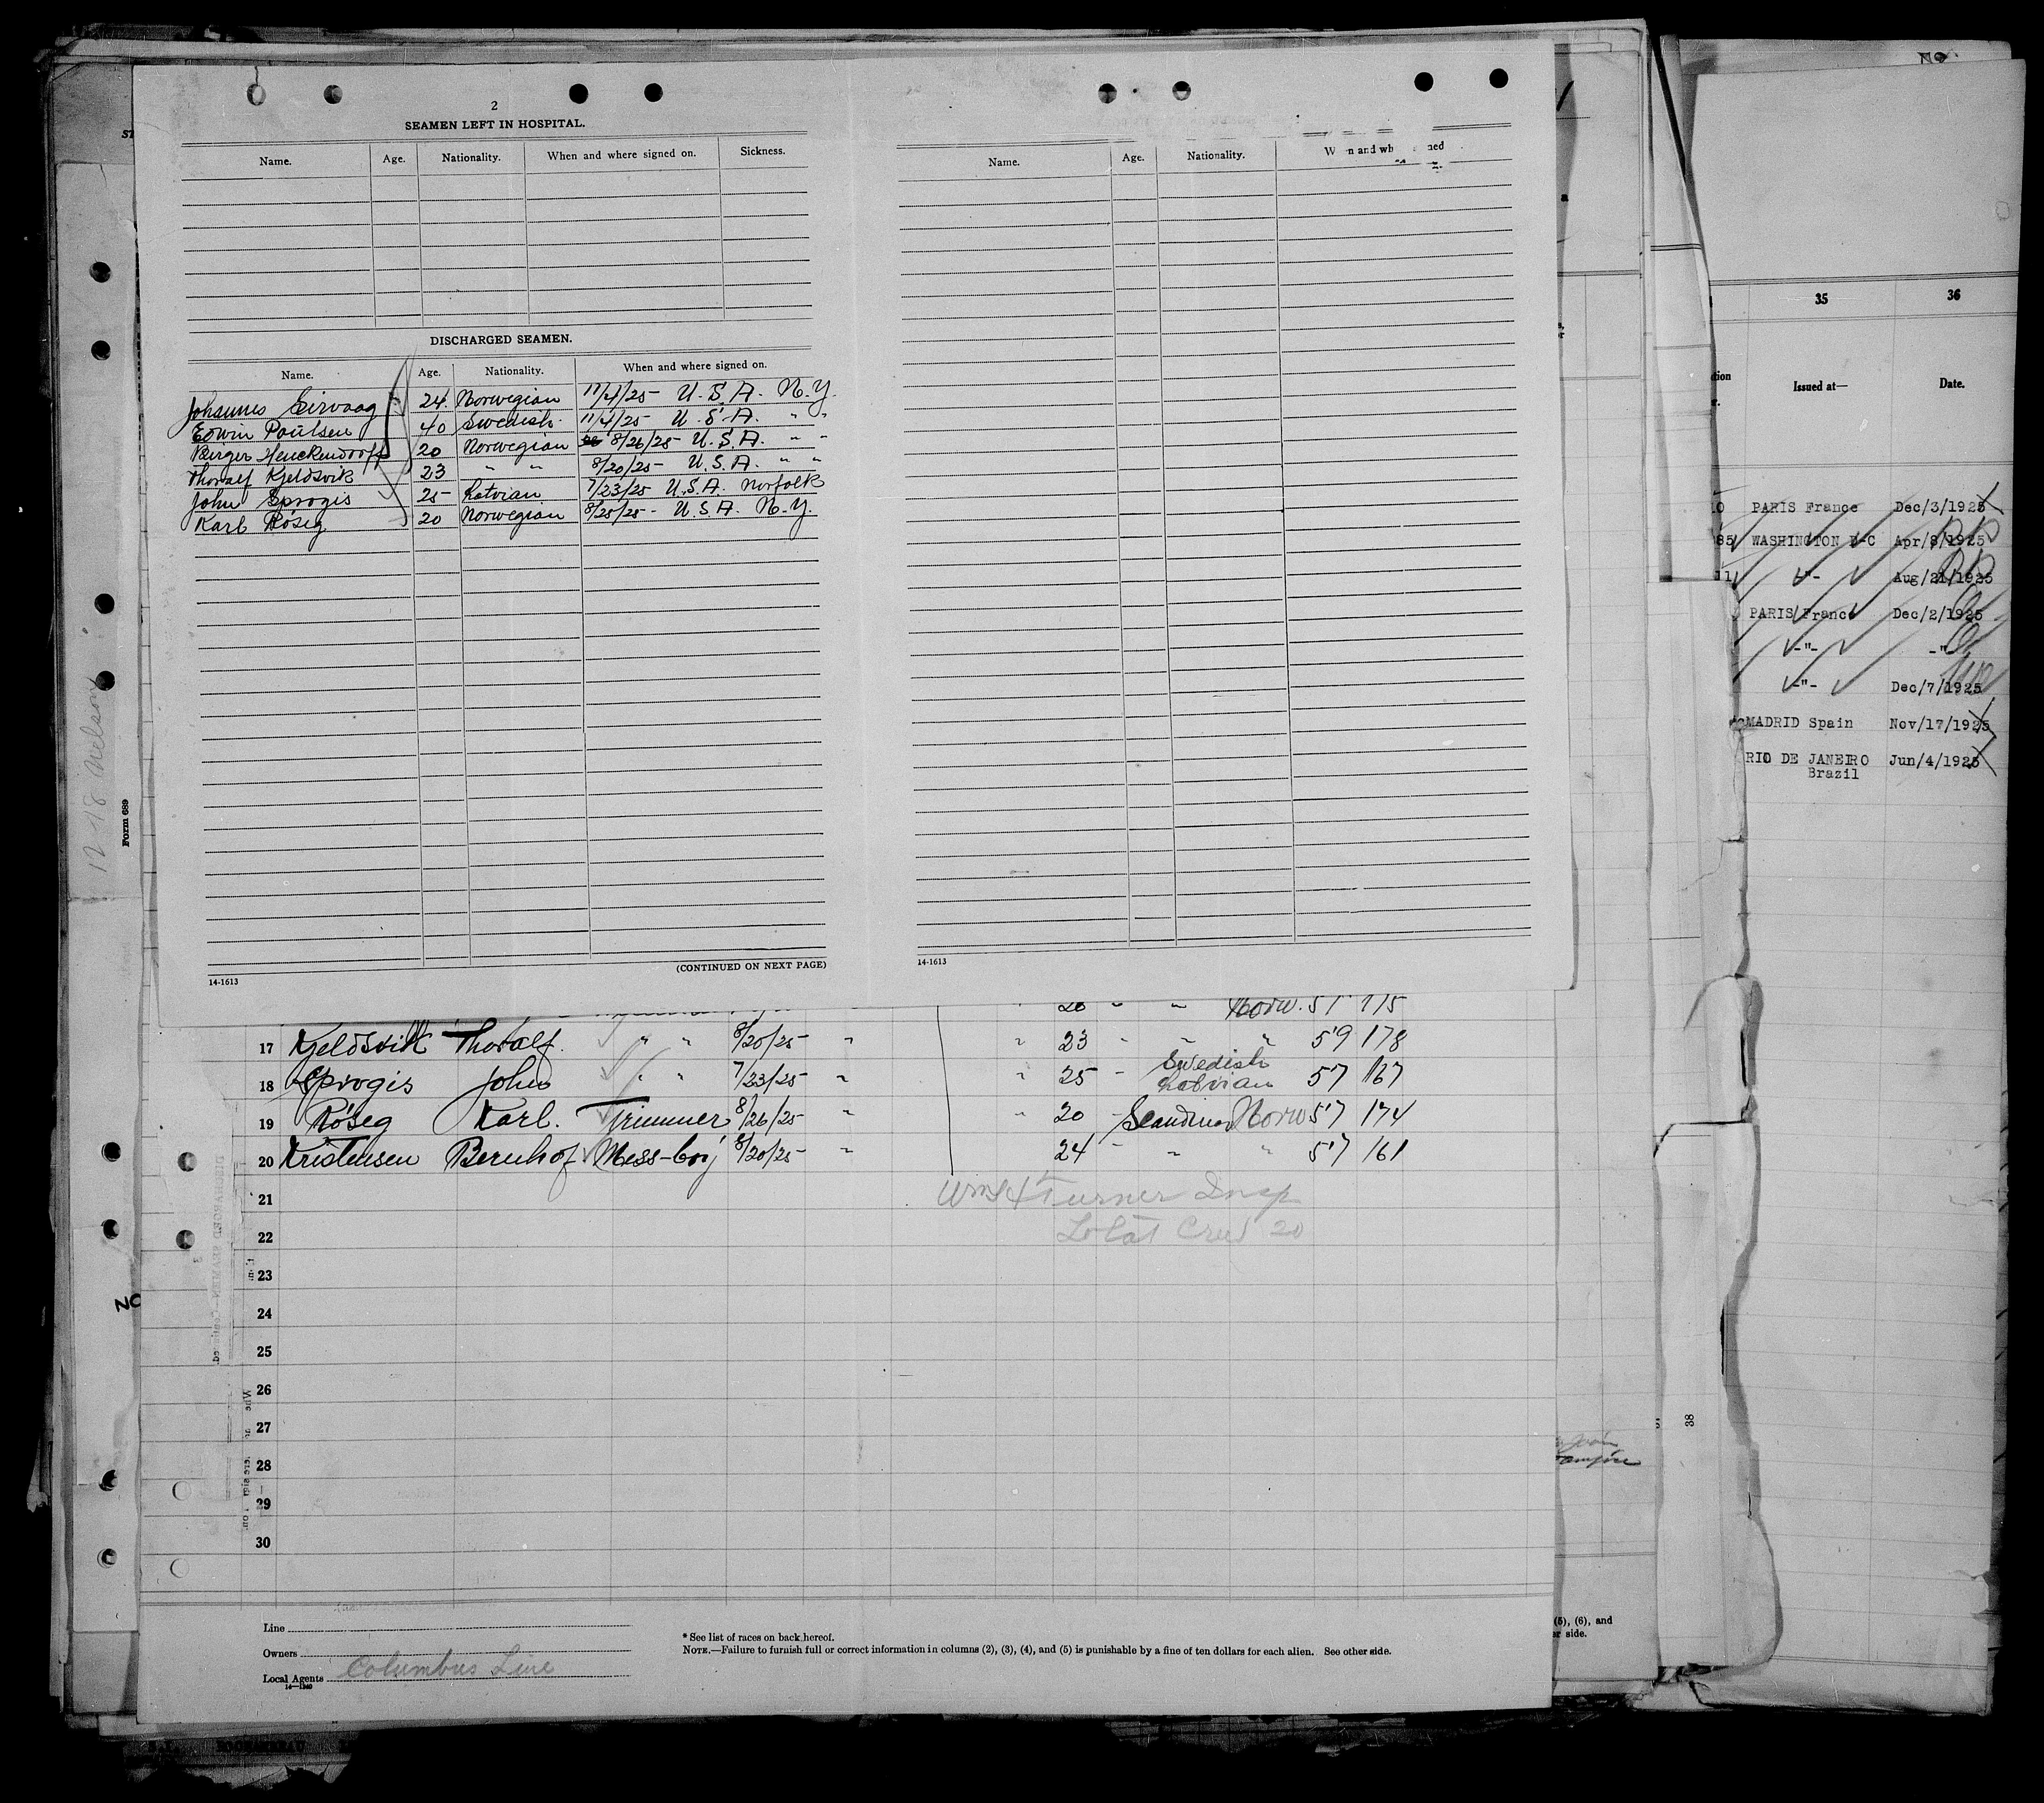 2
SEAMEN LEFT IN HOSPITAL.
Name. Age. Nationality. When and where signed on. Sickness.
DISCHARGED SEAMEN.
Name. Age. Nationality. When and where signed on.
Johannes Eirvaag 24. Norwegian 11/4/25- U.S.A. N.Y.
Edwin Paulsen 40 Swedish. 11/4/25 U.S.A. " "
Birger Henckendorff 20 Norwegian 8/26/25- U.S.A. " "
Thoralf Kjeldsvik 23 " " 8/20/25- U.S.A. " "
John Sprogis 25- Latvian 7/23/25 U.S.A. Norfolk
Karl Röseg 20 Norwegian 8/25/25- U.S.A. N.Y.
(CONTINUED ON NEXT PAGE)
14-1613
Name. Age. Nationality.
14-1613
20 " " Norw. 5'1 175
17 Kjeldsvik Thoralf. " " 8/20/25- " " 23 " " " 5'9 178
18 Sprogis John " " 7/23/25- " " 25 - Swedish Latvian 5'7 167
19 Röseg Karl. Trimmer 8/26/25 " " 20 - Scandinav Norw 5'7 174
20 Kristensen Bernhof Mess-boy 8/20/25- " 24 - " " 5'7 161
21 Turner Insp
22 Total Crew 20
23
24
25
26
27
28
29
30
Line
Owners
Local Agents Columbus Line
* See list of races on back hereof.
NOTE.—Failure to furnish full or correct information in columns (2), (3), (4), and (5) is punishable by a fine of ten dollars for each alien. See other side.
12-18 Nelson
Form 689
35 36
Issued at— Date.
PARIS France Dec/3/1925
85 WASHINGTON D-C Apr/8/1925
11 -"- Aug/21/1925
PARIS France Dec/2/1925
-"- -"-
-"- Dec/7/1925
MADRID Spain Nov/17/1925
RIO DE JANEIRO Jun/4/1925
Brazil
38
(5), (6), and
er side.